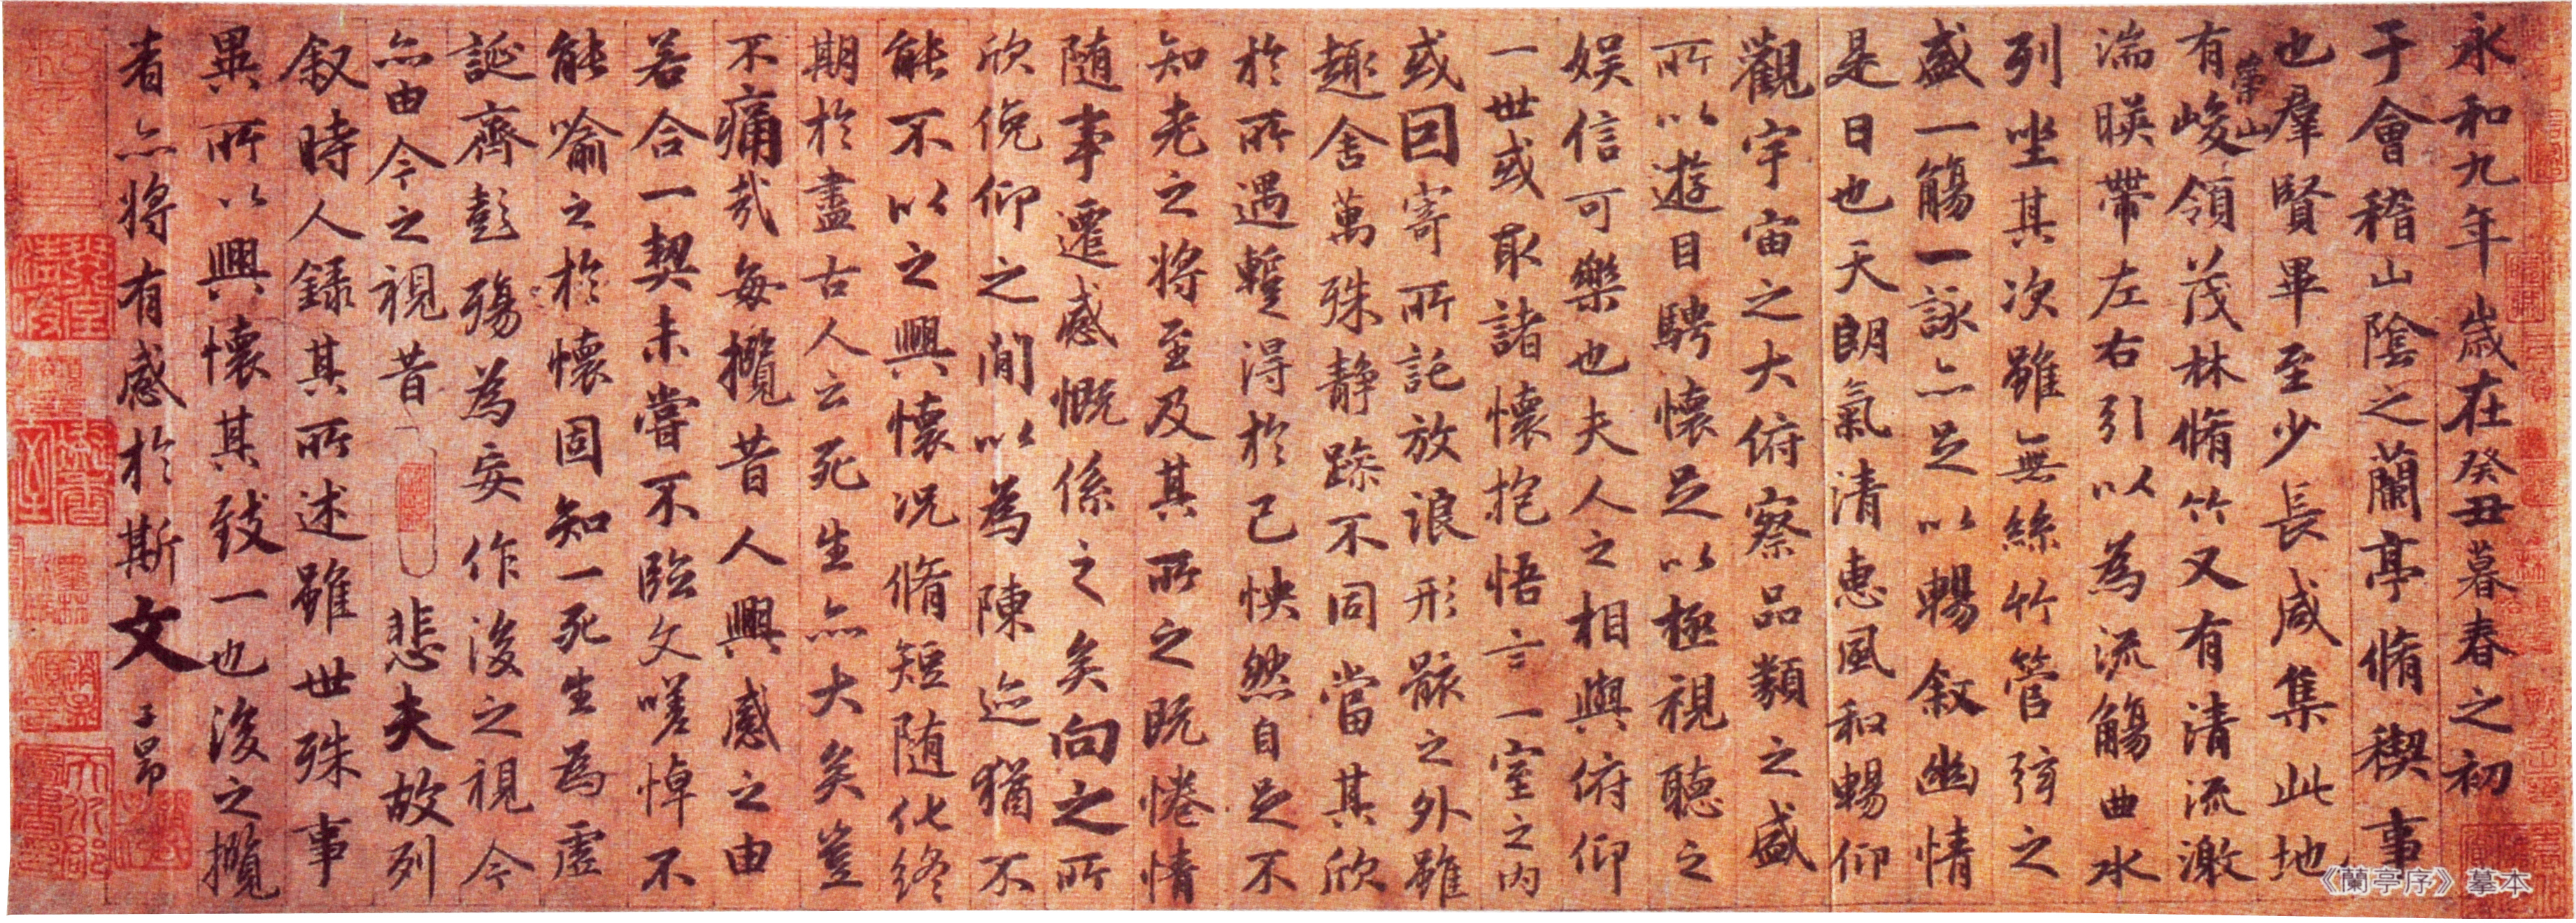 永和九年歲在癸丑暮春之初
于會稽山陰之蘭亭脩稧事
也羣賢畢至少長咸集此地
有峻領茂林脩竹又有清流激
崇山
湍暎帶左右引以為流觴曲水
列坐其次雖無絲竹管弦之
盛一觴一詠亦足以暢叙幽情
是日也天朗氣清惠風和暢仰
觀宇宙之大俯察品類之盛
所以遊目騁懷足以極視聽之
娛信可樂也夫人之相與俯仰
一世或取諸懷抱悟言一室之內
或因寄所託放浪形骸之外雖
趣舍萬殊静躁不同當其欣
於所遇蹔得於己怏然自足不
知老之將至及其所之既惓情
随事遷感慨係之矣向之所
欣俛仰之閒以為陳迹猶不
能不以之興懷况脩短随化終
期於盡古人云死生亦大矣豈
不痛哉每攬昔人興感之由
若合一契未嘗不臨文嗟悼不
能喻之於懷固知一死生為虛
誕齊彭殤為妄作後之視今
亦由今之視昔 悲夫故列
叙時人錄其所述雖世殊事
異所以興懷其致一也後之攬
者亦將有感於斯文 子昂
《蘭亭序》摹本